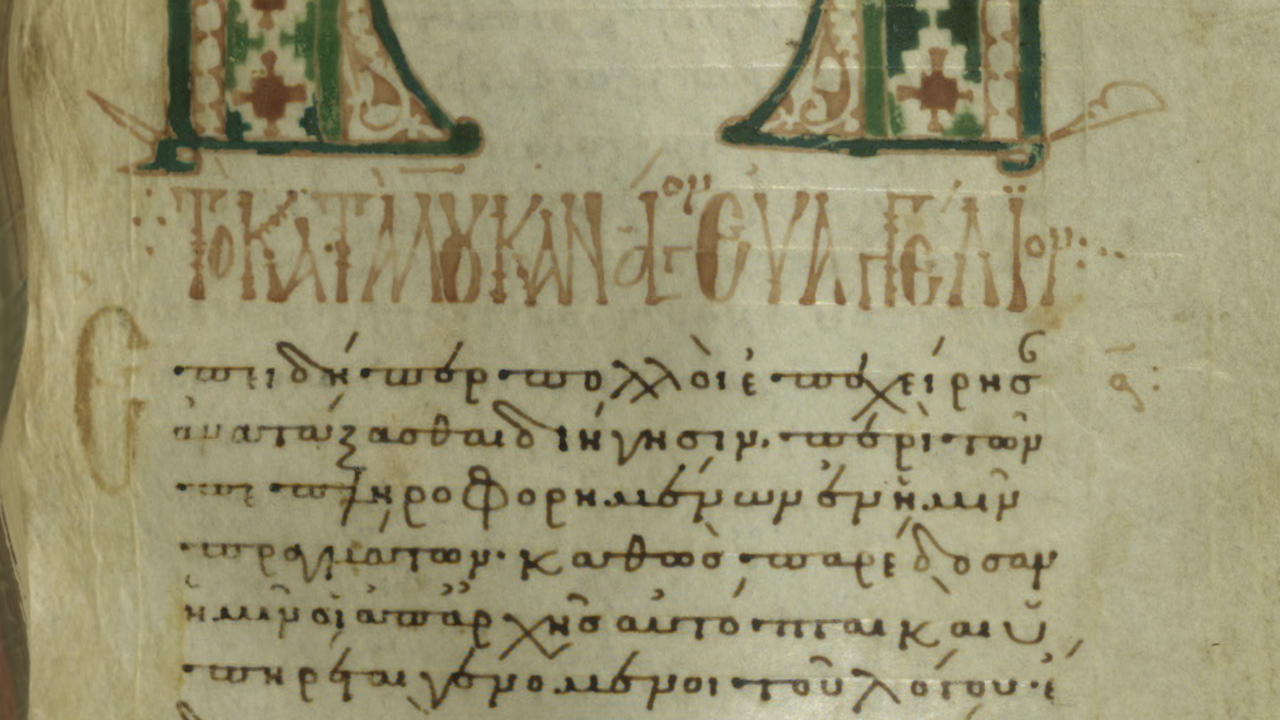 Τὸ κατὰ Λουκᾶν ἅγιον εὐαγγέλιον
Ἐπειδήπερ πολλοὶ ἐπεχείρησ
ἀνατάξασθαι διήγησιν, περὶ τῶν
πεπληροφορημένων ἐν ἡμῖν
πραγμάτων· καθὼς παρέδοσαν
ἡμῖν οἱ ἀπ' ἀρχῆς αὐτόπται καὶ ὑ
πηρέται γενόμενοι τοῦ λόγου· ἔ